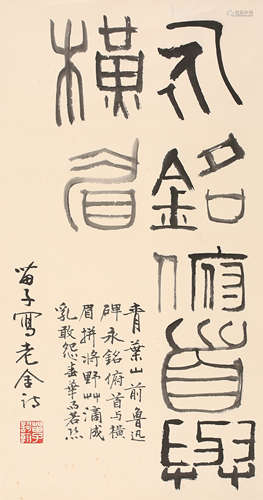 永銘俯首與
橫眉
青葉山前魯迅
碑永銘俯首与橫
眉拼將野艸滴成
乳敢怨春華若丝
苗子寫老舍诗